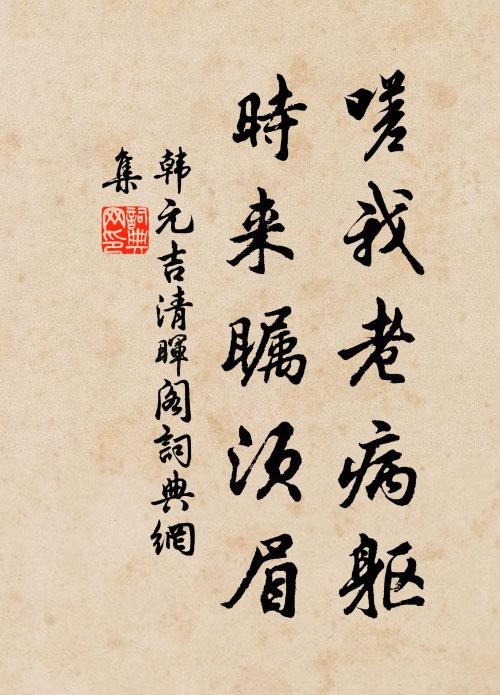 嗟我老病躯
時来瞩须眉
韩元吉清暉阁詞典網
集
詞典網印